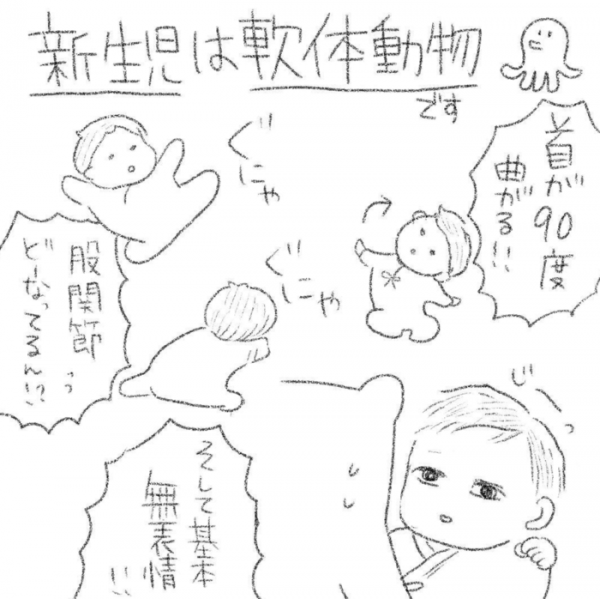 新生児は軟体動物
です
首が90度
曲がる!!
ぐにゃ
股関節
どーなってるん!?
ぐにゃ
じーっ
そして基本
無表情
!!